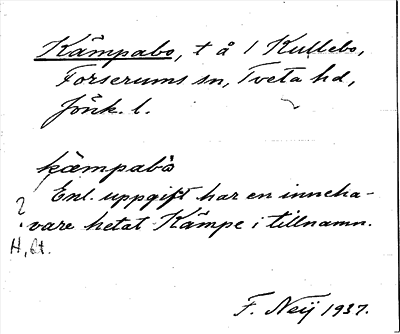 Kämpabo, t å 1 Kullebo,
Forserums sn, Tveta hd,
Jönk. l.
kæmpabò
Enl. uppgift har en inneha-
vare hetat Kämpe i tillnamn.
?
H,
F. Neij 1937.